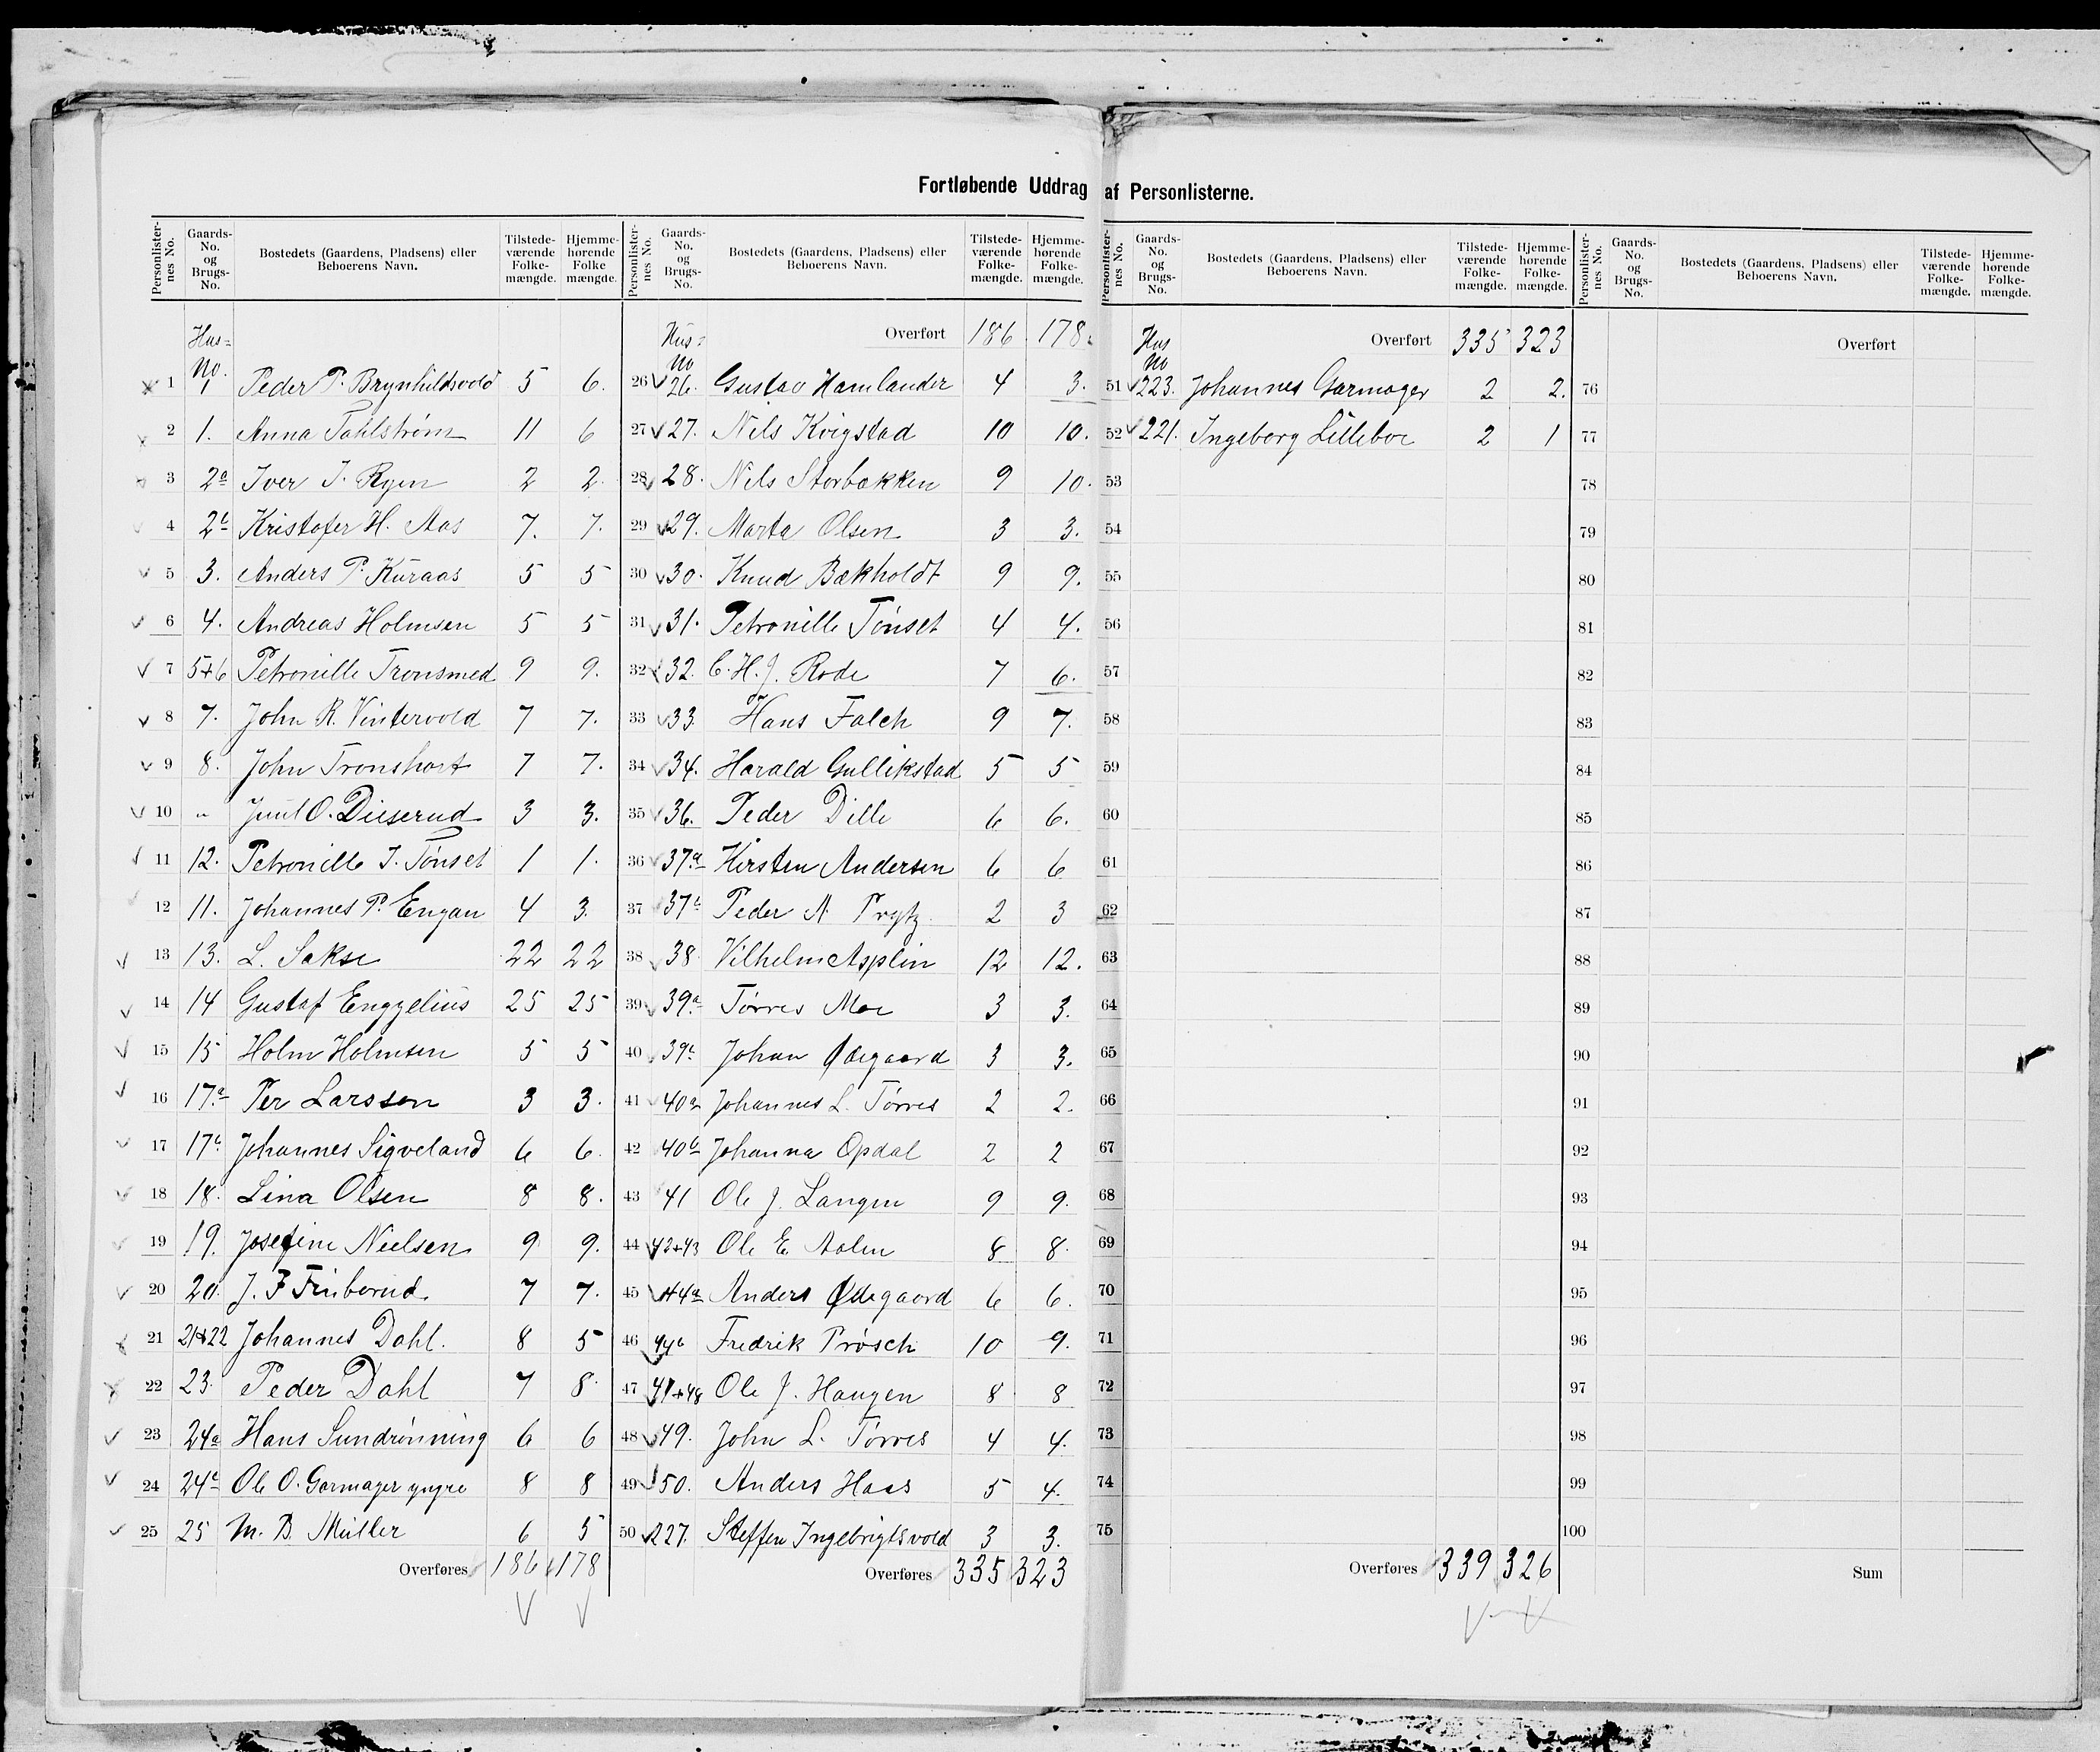 Fortløbende Uddrag af Personlisterne.
Personlister-nes No. Gaards-No. og Brugs-No. Bostedets (Gaardens, Pladsens) eller Beboerens Navn. Tilstede-værende Folke-mængde. Hjemme-hørende Folke mængde.
Hus-No.
1 1 Peder P. Brynhildsvold 5 6.
2 1. Anna Tahlstrøm 11 6
3 2a Iver J. Ryen 2 2.
4 2b Kristofer H. Aas 7. 7.
5 3. Anders P. Kuraas 5 5
6 4. Andreas Holmsen 5 5
7 5+6 Petronille Tronsmed 9 9.
8 7. John R. Vintervold 7 7.
9 8. John Tronshart 7 7.
10 " Juul O. Dieserud 3 3.
11 12. Petronille J. Tønset 1 1.
12 11. Johannes P. Engan 4 3.
13 13. L. Sakse 22 22
14 14 Gustaf Enggelius 25 25
15 15 Holm Holmsen 5 5
16 17a Per Larsson 3 3.
17 17b Johannes Sigveland 6 6.
18 18. Lina Olsen 8 8.
19 19. Josefine Nielsen 9 9.
20 20. J. F. Finborud 7 7.
21 21+22 Johannes Dahl. 8 5
22 23. Peder Dahl 7 8.
23 24a Hans Sundrønning 6 6
24 24b Ole O. Garmager yngre 8 8
25 25 M. B. Müller 6 5
Overføres 186 178
Personlister-nes No. Gaards-No. og Brugs-No. Bostedets (Gaardens, Pladsens) eller Beboerens Navn. Tilstede-værende Folke-mængde. Hjemme-hørende Folke-mængde.
Hus-No Overført 186 178.
26 26. Gustav Hamlander 4 3.
27 27. Nils Kvigstad 10 10.
28 28. Nils Storbækken 9 10.
29 29. Marta Olsen 3 3.
30 30. Knud Bækholdt 9 9.
31 31. Petronille Tønset 4 4.
32 32. C. H. J. Rode 7 6.
33 33 Hans Falch 9 7.
34 34. Harald Gullikstad 5 5
35 36. Peder Dille 6 6.
36 37a Kirsten Andersen 6 6
37 37b Peder N. Prytz. 2 3
38 38 Vilhelm Asplin 12 12.
39 39a Tørres Moe 3 3.
40 39b Johan Ødegaard 3 3.
41 40a Johannes L. Tørres 2 2.
42 40b Johanna Opdal 2 2
43 41 Ole J. Langen 9 9.
44 42+43 Ole E. Aalen 8 8.
45 44a Anders Ødegaard 6 6.
46 44b Fredrik Prøsch 10 9.
47 47+48 Ole J. Haugen 8 8
48 49. John L. Tørres 4 4.
49 50. Anders Haas 5 4.
50 227. Steffen Ingebrigtsvold 3 3.
Overføres 335 323
Personlister-nes No. Gaards-No. og Brugs-No. Bostedets (Gaardens, Pladsens) eller Beboerens Navn. Tilstede-værende Folke-mængde. Hjemme-hørende Folke-mængde.
Hus No Overført 335 323
51 223. Johannes Garmager 2 2.
52 221. Ingeborg Lilleboe 2 1
53
54
55
56
57
58
59
60
61
62
63
64
65
66
67
68
69
70
71
72
73
74
75
Overføres 339 326
Personlister-nes No. Gaards-No. og Brugs-No. Bostedets (Gaardens, Pladsens) eller Beboerens Navn. Tilstede-værende Folke-mængde. Hjemme-hørende Folke-mængde.
Overført
76
77
78
79
80
81
82
83
84
85
86
87
88
89
90
91
92
93
94
95
96
97
98
99
100
Sum